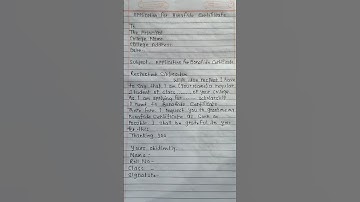 Application for Bonafide Certificate
To
The Principal
College Name
College Address
Date
Subject - Application for Bonafide Certificate
Respected
With due respect I have
to say that I am (Your name) a Regular
Student of class ...... of your College
As I am applying for ......
I need to Bonafide Certificate
There fore I request you to
Bonafide Certificate as soon as
Possible I shall be grateful to you
for this
Thanking you
Yours obidiently
Name:-
Roll No:-
Class
Signature:-